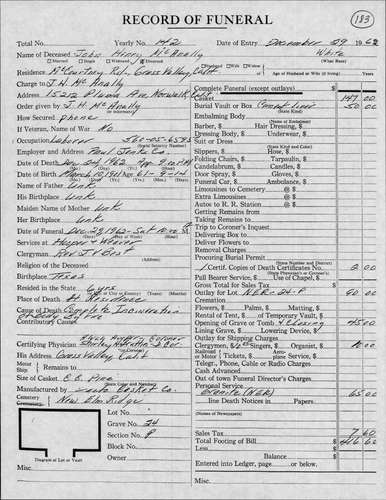 RECORD OF FUNERAL
183
Total No. Yearly No. 142 Date of Entry December 29 1962
Name of Deceased John Henry McAnally White
Married Single Widowed Divorced Husband Wife Widow (What Race)
Residence McCourtney Rd., Grass Valley, Calif. Age of Husband or Wife (if living) Years
Charge to J. H. McAnally
Address 15212 Pluma Ave. Norwalk, Calif.
Order given by J. H. McAnally
or informant
How Secured phone
If Veteran, Name of War no
Occupation Laborer 560-05-6595
(Social Security Number)
Employer and Address
Date of Death Dec 24, 1962
Date of Birth March 10, 1901 61-9-14
Name of Father Unk
His Birthplace Unk
Maiden Name of Mother Unk
Her Birthplace Unk
Date of Funeral Dec 29, 1962 - Sat 10
Services at Hooper & Weaver
(Address)
Clergyman Rev
Religion of the Deceased
Birthplace Texas
Resided in the State 6 yrs
Place of Death At Residence
Cause of Death Complete Incineration
Contributory Causes
Certifying Physician
His Address Grass Valley, Calif
Ship Remains to
Size of Casket Pine
(State Color and Number)
Manufactured by Casket Co.
Cemetery New Elm Ridge
Lot No.
Grave No. 24
Section No. P
Block No.
Owner
Diagram of Lot or Vault
Misc.
Complete Funeral (except outlays) $
Casket 147 00
Burial Vault or Box Cement liner 50 00
(State Kind)
Embalming Body
Barber, $ Dressing Hair, $
Dressing Body, $ Underwear, $
Suit or Dress
(State Kind and Color)
Slippers, $ Hose, $
Folding Chairs, $ Tarpoulin, $
Candelabrum, $ Candles, $
Door Spray, $ Gloves, $
Funeral Car, $ Ambulance, $
Limousines to Cemetery @ $
Extra Limousines @ $
Autos to R. R. Station @ $
Getting Remains from
Taking Remains to
Trip to Coroner's Inquest
Delivering Box to
Deliver Flowers to
Removal Charges
Procuring Burial Permit
(State Number and District)
1 Certif. Copies of Death Certificates No. 2 00
(State Physician's or Coroner's)
Pall Bearer Service, $ Outlay, $
Outlay for Lot NER-24-P 90 00
Cremation
Flowers, $ Palms, $ Matting, $
Rental of Tent, $ of Temporary Vault, $
Opening of Grave or Tomb & closing 45 00
Lining Grave, $ Lowering Device, $
Outlay for Shipping Charges
Clergymen, $ Singers, $ Organist, $ 10 00
Railroad Aero or Motor $ Tickets, $ Plane Service, $
Telegr., Phone, Cable or Radio Charges
Cash Advanced
Out of town Funeral Director's Charges
Personal Service
Granite (NER) 65 00
line Death Notices in Papers
(Names of Newspapers)
Sales Tax 7 60
Total Footing of Bill $ 416 60
Less
Balance $
Entered into Ledger, page or below.
Misc.